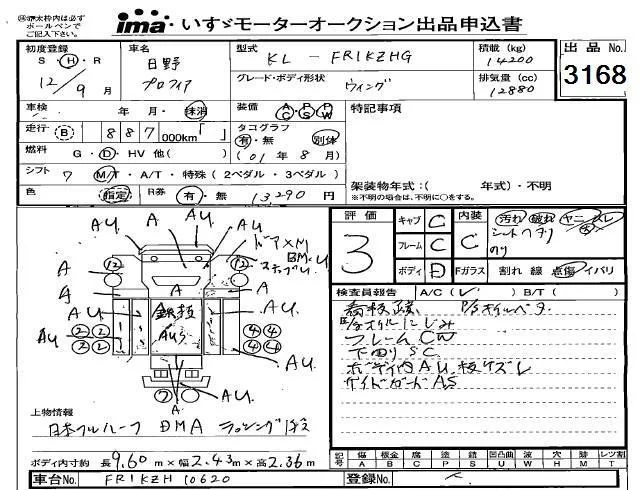 ※太枠内は必ず
ボールペンで
ご記入下さい。
ima いすゞモーターオークション出品申込書
初度登録
S・H・R
12/9月
車名
日野
プロフィア
型式
KL - FR1KZHG
グレード・ボディ形状
ウイング
積載 (kg)
14200
排気量 (cc)
12880
出品 No.
3168
車検
年 月・抹消
装備
A/C P/S P/W
走行 (B) 887 000km
タコグラフ
有・無 別体
(01年8月)
燃料
G・D・HV 他( )
シフト 7 M/T・A/T・特殊(2ペダル・3ペダル)
色 指定
R券 有・無 13290円
特記事項
架装物年式:( 年式)・不明
※不明の場合は、不明に○をする。
評価
3
キャブ C
フレーム C
ボディ D
内装 C
汚れ 破れ ヤニ スレ
シートヘタリ
のり
Fガラス 割れ 線 点傷 イバリ
検査員報告 A/C(レ) B/T( )
P/Sオイルベタ
E/gオイルにじみ
フレームCW
下回りSC
ボディ内AU、板ササクレ
サイドガードAS
AU A AU
ドアXM
BM-U
ステップU
12 12
A A
A A A
鉄板
AU
AU
22 22
44 44
AU
AU
7
A
上物情報
日本フルハーフ DMA ラッシング1段
ボディ内寸約 長9.60m×幅2.43m×高2.36m
記号
傷 板金 腐 塗 錆 凹凸曲 波 穴 跡 レツ割
A B C P S U W H M T
車台No. FR1KZH 10620
登録No.